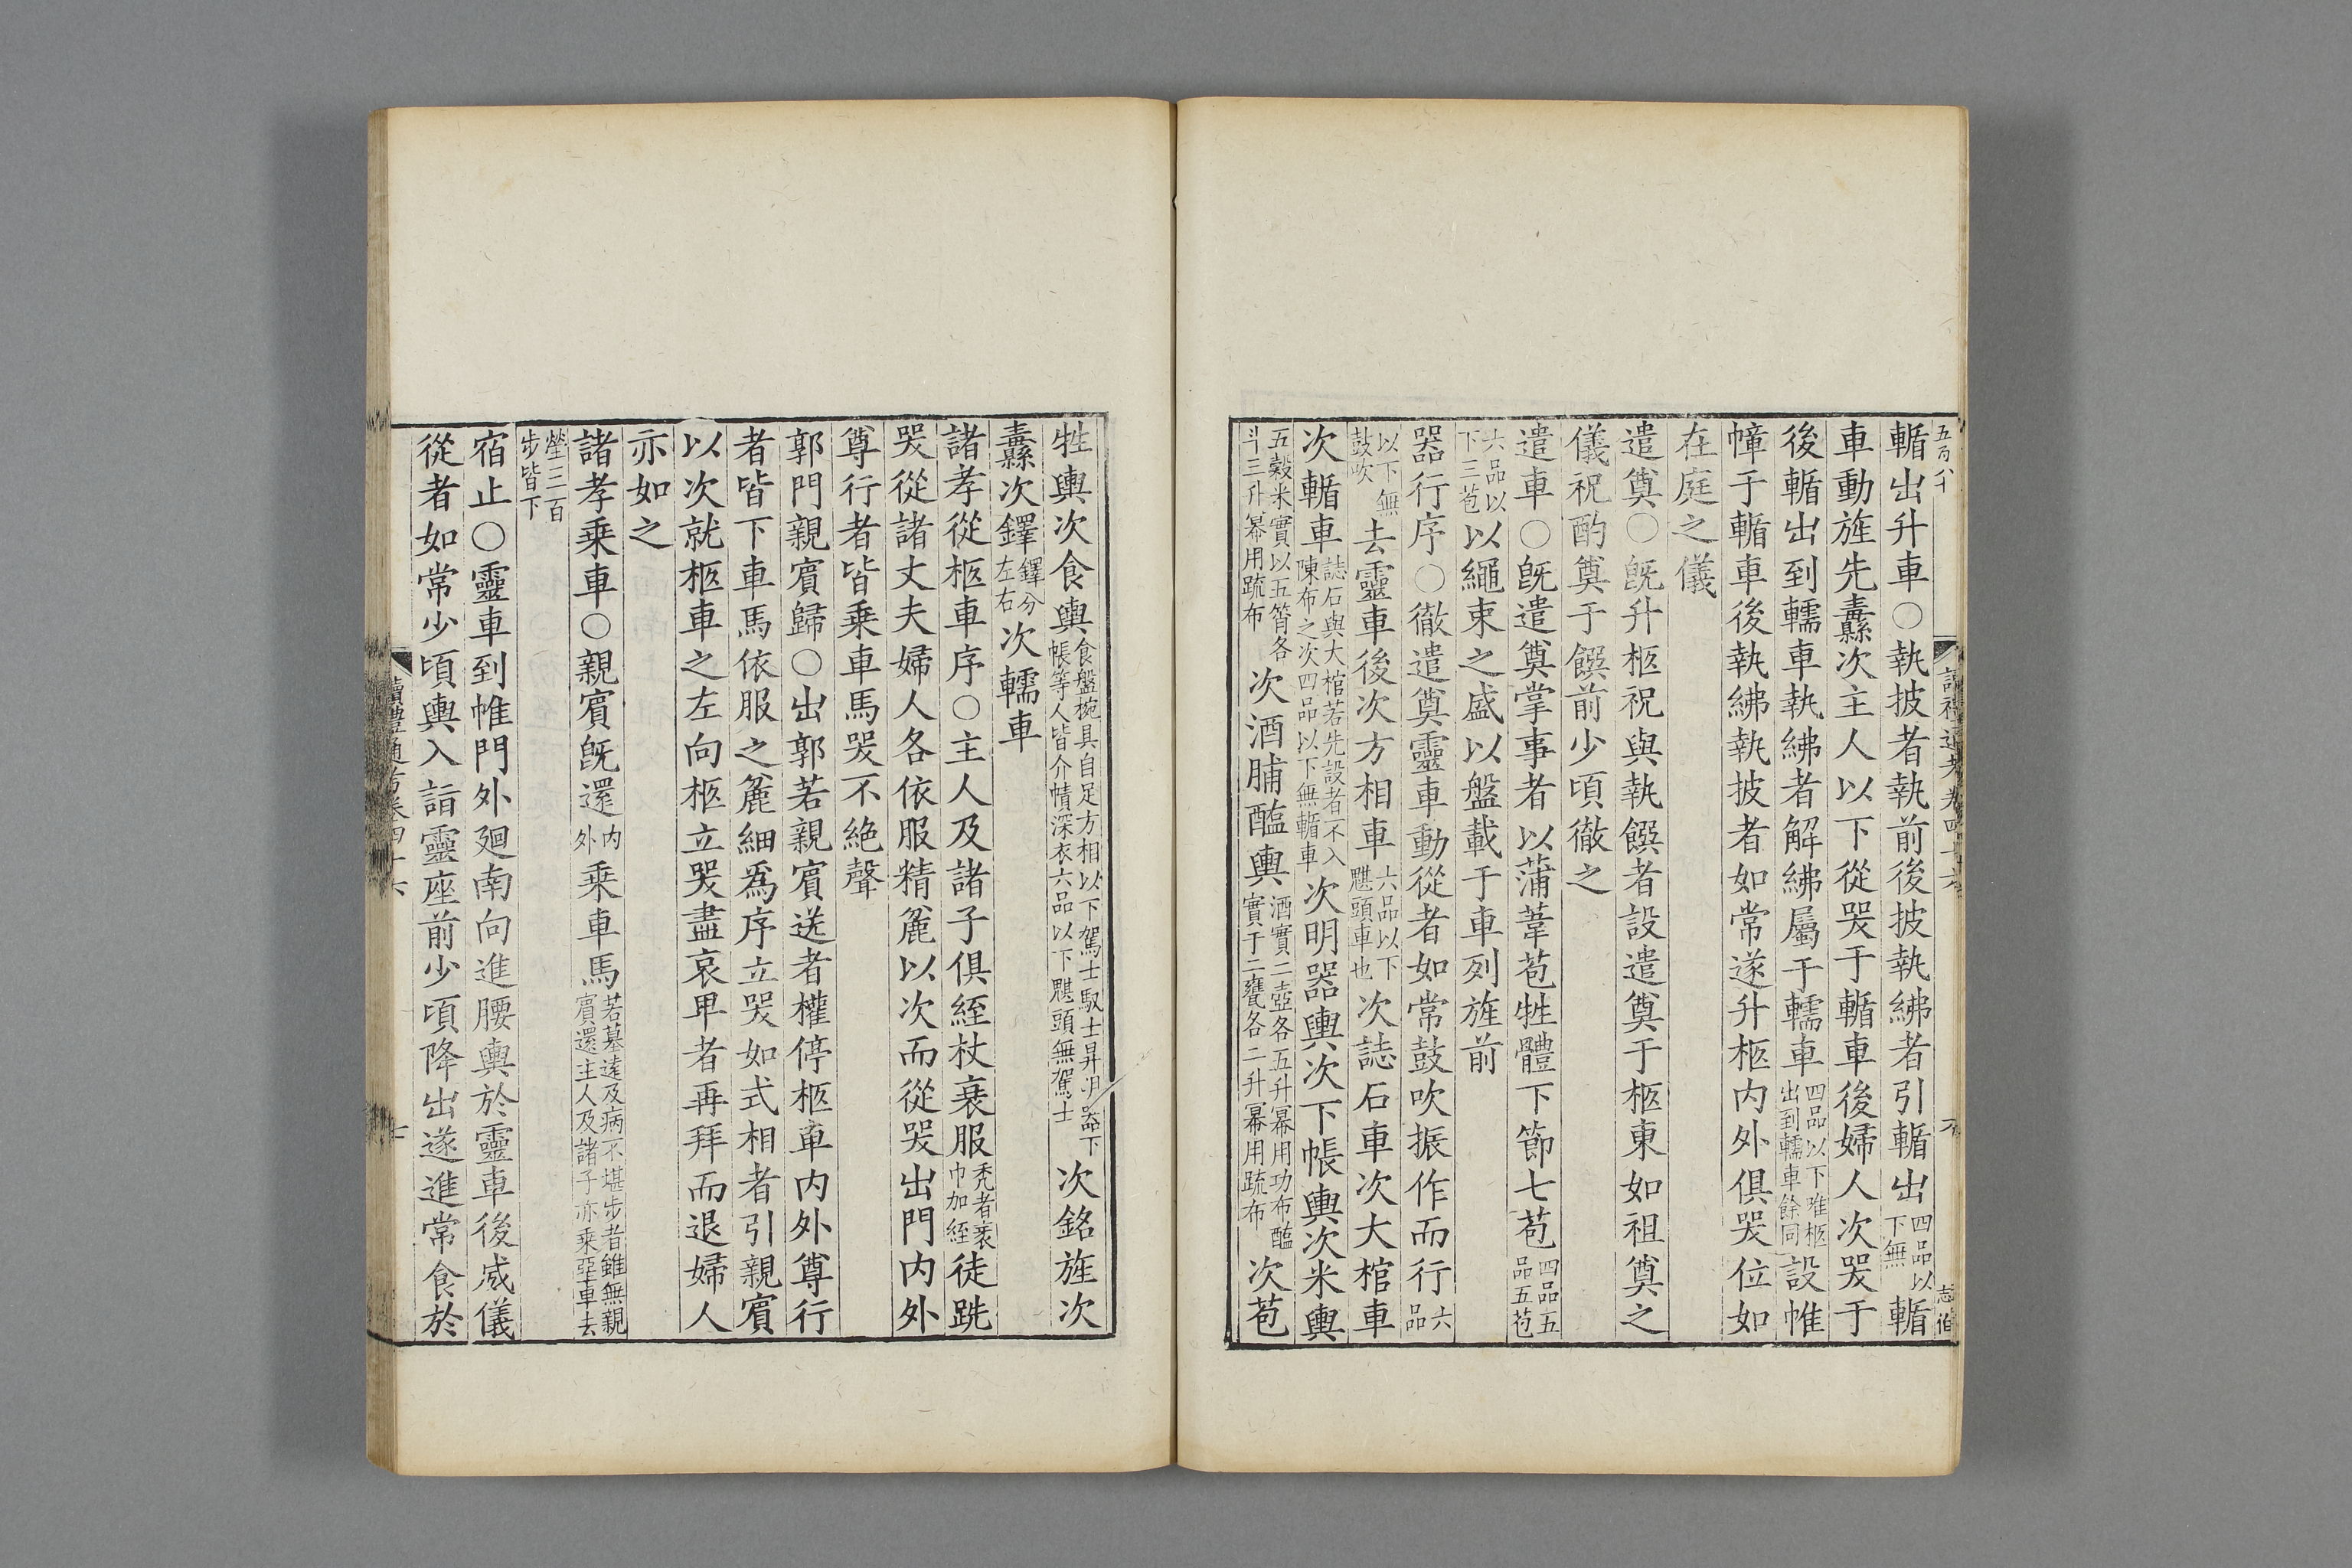 輴出升車○執披者執前後披執紼者引輴出四品以下無輴
車動旌先纛次主人以下從哭于輴車後婦人次哭于
後輴出到轜車執紼者解紼屬于轜車四品以下唯柩出到轜車餘同設帷
幛于輴車後執紼執披者如常遂升柩内外俱哭位如
在庭之儀
遣奠○旣升柩祝與執饌者設遣奠于柩東如祖奠之
儀祝酌奠于饌前少頃徹之
遣車○旣遣奠掌事者以蒲葦苞牲體下節七苞四品五品五苞
六品以下三苞以繩束之盛以盤載于車列旌前
器行序○徹遣奠靈車動從者如常鼓吹振作而行六品
以下無鼓吹去靈車後次方相車六品以下魌頭車也次誌石車次大棺車
次輴車誌石與大棺若先設者不入陳布之次四品以下無輴車次明器輿次下帳輿次米輿
五穀米實以五筲各斗三升幂用疏布次酒脯醢輿酒實二壺各五升幂用功布醢實于二甕各二升幂用疏布次苞
牲輿次食輿食盤椀具自足方相以下駕士馭士舁明器下帳等人皆介幘深衣六品以下魌頭無駕士次銘旌次
纛次鐸鐸分左右次轜車
諸孝從柩車序○主人及諸子俱絰杖衰服禿者衰巾加絰徒跣
哭從諸丈夫婦人各依服精麄以次而從哭出門内外
尊行者皆乘車馬哭不絶聲
郭門親賓歸○出郭若親賓送者權停柩車内外尊行
者皆下車馬依服之麄細爲序立哭如式相者引親賓
以次就柩車之左向柩立哭盡哀卑者再拜而退婦人
亦如之
諸孝乘車○親賓旣還内外乘車馬若墓遠及病不堪步者雖無親賓還主人及諸子亦乘堊車去
塋三百步皆下
宿止○靈車到帷門外廻南向進腰輿於靈車後威儀
從者如常少頃輿入詣靈座前少頃降出遂進常食於
讀禮通考卷四十六